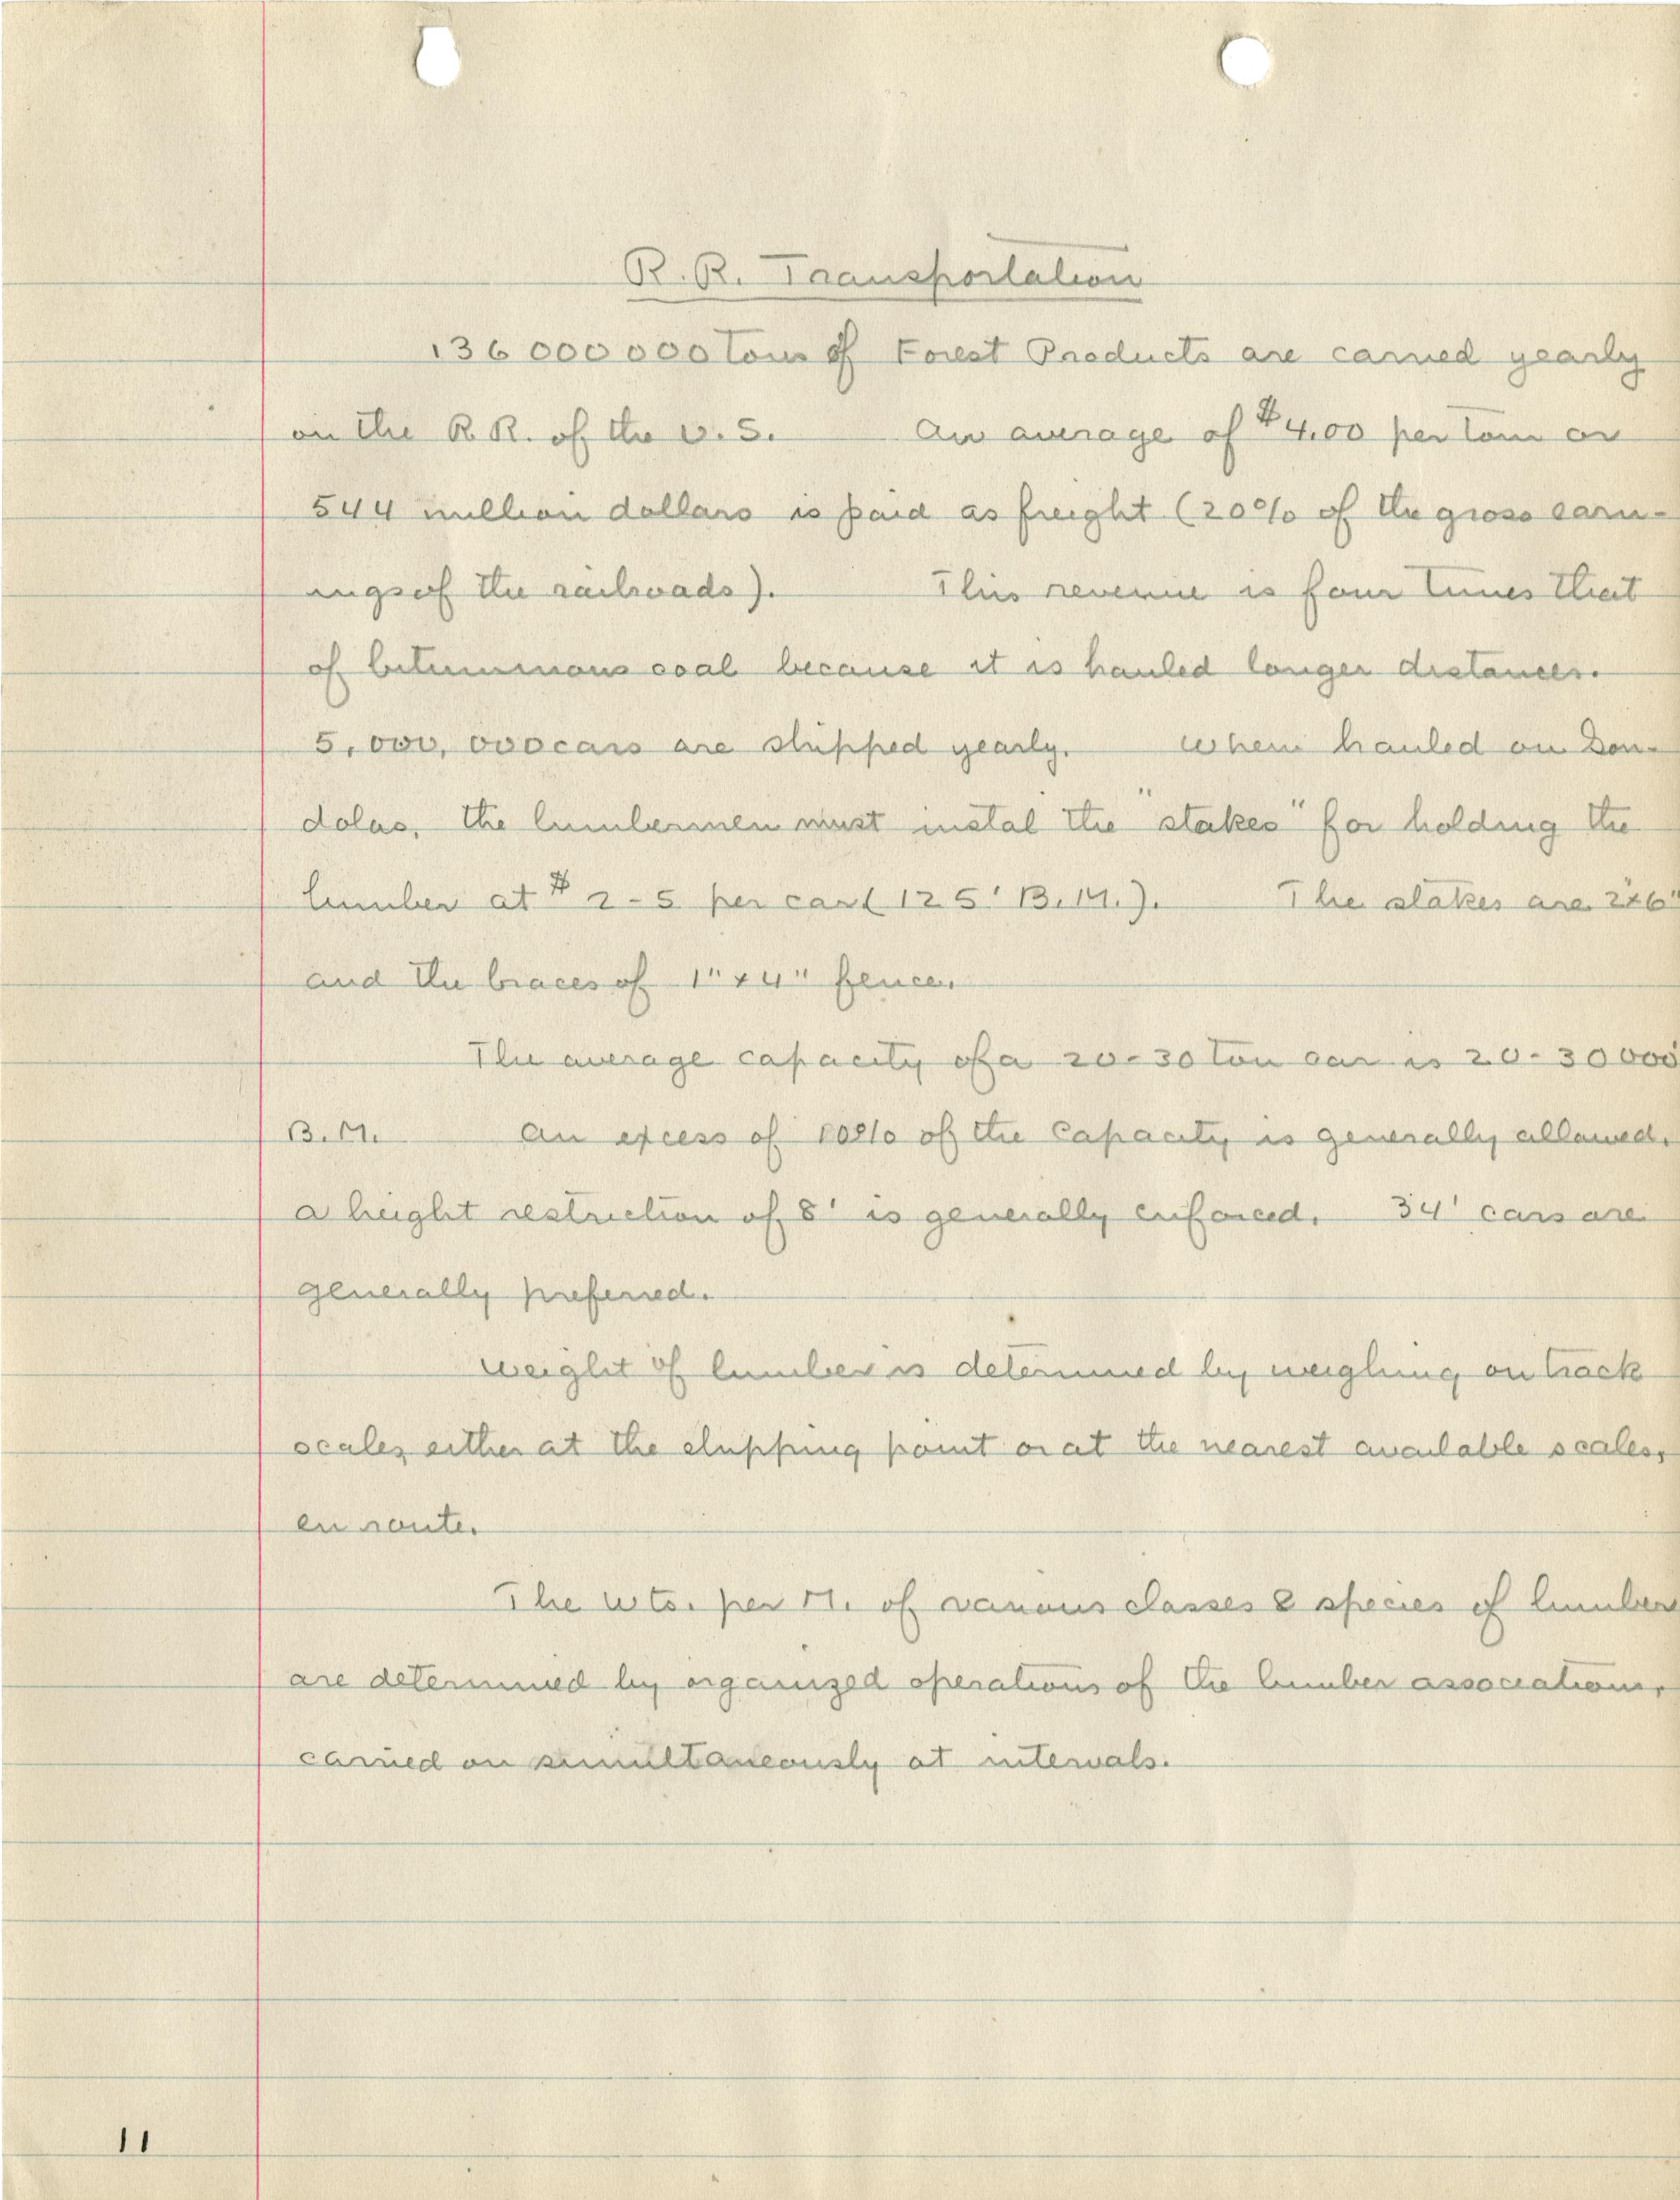 R. R. Transportation
136 000 000 tons of Forest Products are carried yearly
on the R. R. of the U. S. An average of $4.00 per ton or
544 million dollars is paid as freight (20% of the gross earn-
ings of the railroads). This revenue is four times that
of bituminous coal because it is hauled longer distances.
5,000,000 cars are shipped yearly. When hauled on Gon-
dolas, the lumbermen must instal the "stakes" for holding the
lumber at $2-5 per car (125' B.M.). The stakes are 2x6"
and the braces of 1"x4" fence.
The average capacity of a 20-30 ton car is 20-30 000'
B.M. An excess of 10% of the capacity is generally allowed.
A height restriction of 8' is generally enforced. 34' cars are
generally preferred.
Weight of lumber is determined by weighing on track
scales either at the shipping point or at the nearest available scales,
en route.
The wts. per M. of various classes & species of lumber
are determined by organized operations of the lumber associations,
carried on simultaneously at intervals.
11